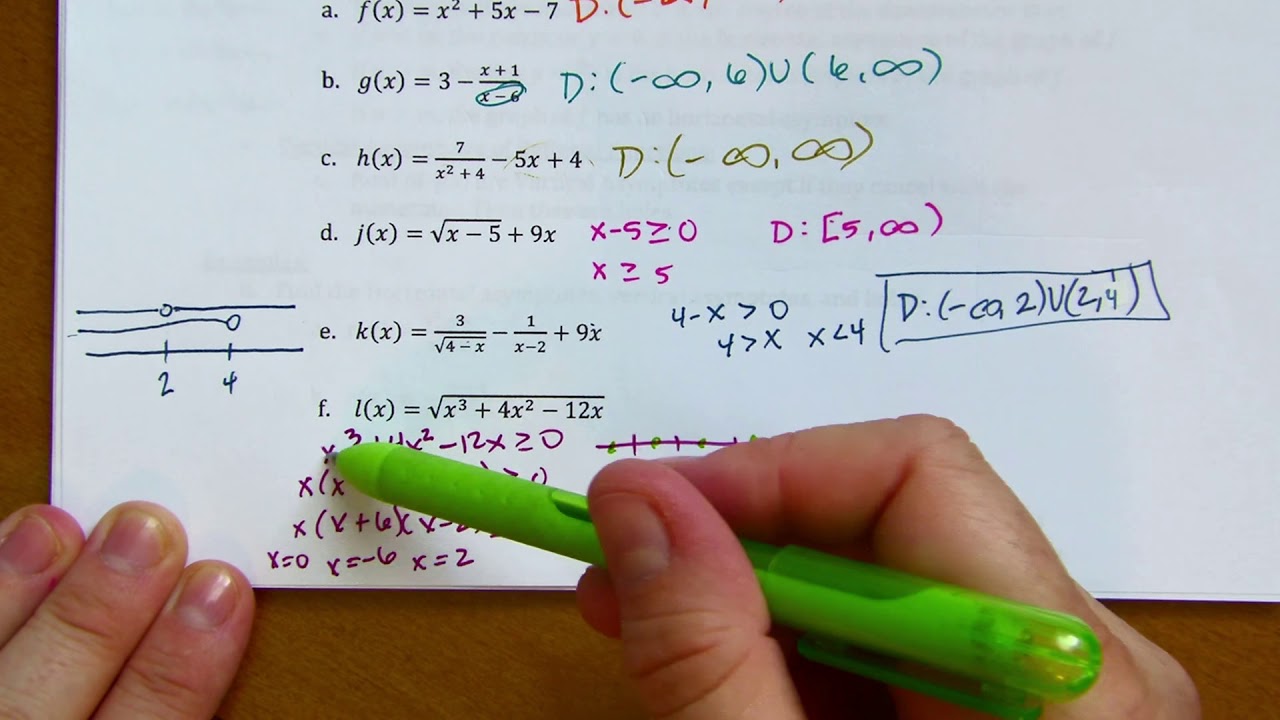 a. f(x) = x² + 5x − 7 D:(-∞,
b. g(x) = 3 − (x + 1)/(x − 6) D:(-∞, 6)∪(6, ∞)
c. h(x) = 7/(x² + 4) − 5x + 4 D:(-∞, ∞)
d. j(x) = √(x − 5) + 9x x-5≥0 D: [5, ∞)
x ≥ 5
4-x > 0 D: (-∞, 2)∪(2, 4)
e. k(x) = 3/√(4 − x) − 1/(x−2) + 9x 4>x x<4
2 4
f. l(x) = √(x³ + 4x² − 12x)
x³ +4x² -12x ≥ 0
x(x ≥ 0
x(x+6)(x-2
x=0 x=-6 x=2